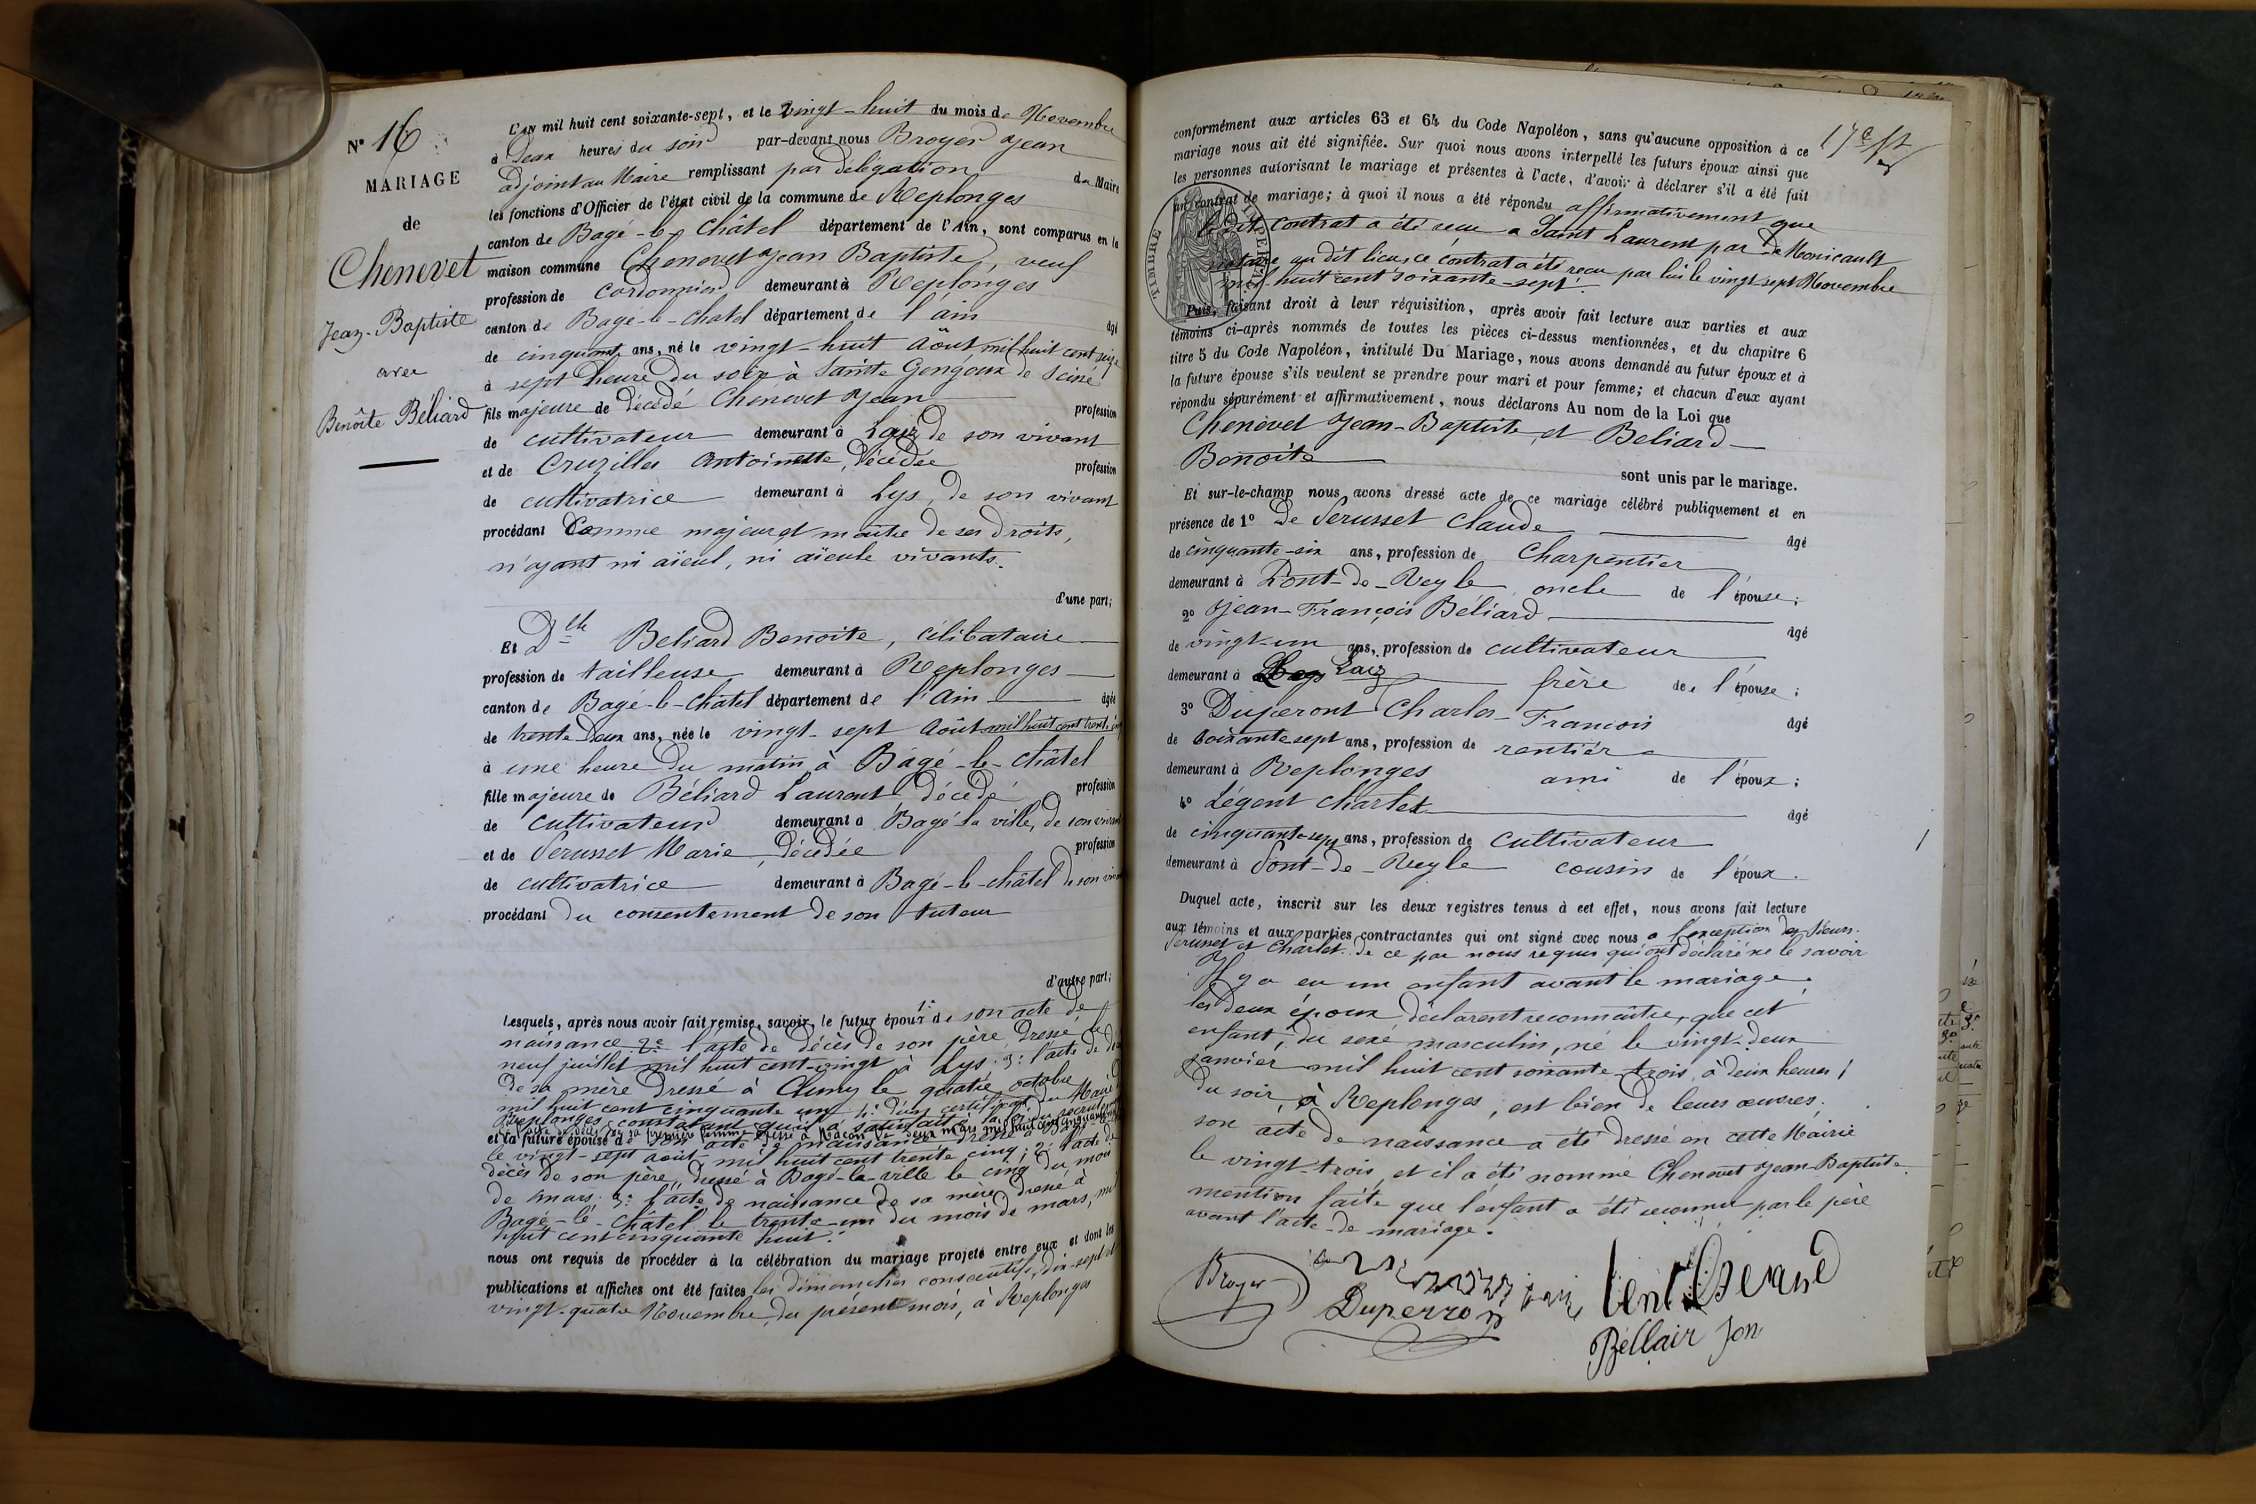 N° 16
MARIAGE
de
Chenevet
Jean-Baptiste
avec
Benoîte Béliard
L'AN mil huit cent soixante-sept, et le vingt-huit du mois de Novembre
à Deux heures du soir par-devant nous Broyer Jean
adjoint au Maire remplissant par délégation du Maire
les fonctions d'Officier de l'état civil de la commune de Replonges
canton de Bagé-le-Châtel département de l'Ain, sont comparus en la
maison commune Chenevet Jean Baptiste, veuf
profession de cordonnier demeurant à Replonges
canton de Bagé-le-Chatel département de l'ain âgé
de cinquante ans, né le vingt-huit Août mil huit cent seize
à sept heure du soir à Sainte Gengoux de Scissé
fils majeure de décédé Chenevet Jean profession
de cultivateur demeurant à Laiz de son vivant
et de Cruzilles Antoinette, décédée profession
de cultivatrice demeurant à Lys, de son vivant
procédant Comme majeur et maître de ses droits,
n'ayant ni aïeul, ni aïeule vivants.
d'une part;
Et Dlle Beliard Benoite, célibataire
profession de tailleuse demeurant à Replonges
canton de Bagé-le-châtel département de l'ain âgée
de trente deux ans, née le vingt-sept Août mil huit cent trente cinq
à une heure du matin à Bâgé-le-châtel
fille majeure de Béliard Laurent décédé profession
de cultivateur demeurant à Bagé la ville, de son vivant
et de Serusset Marie, décédée profession
de cultivatrice demeurant à Bagé-le-châtel de son vivant
procédant du consentement de son tuteur
d'autre part;
Lesquels, après nous avoir fait remise, savoir, le futur époux 1° de son acte de
naissance 2° l'acte de décès de son père, dressé le
neuf juillet mil huit cent-vingt à Lys. 3° l'acte de décès
de sa mère dressé à Cluny le quatre octobre
mil huit cent cinquante un 4° d'un certificat du Maire de
Replonges constatant qu'il a satisfait à la loi du recrutement
l'acte de décès de sa première femme dressé à Mâcon le deux mars mil huit cent cinquante
et la future épouse de son acte de naissance dressé à
le vingt-sept août mil huit cent trente cinq; 2° l'acte de
décès de son père, dressé à Bagé-la-ville le cinq du mois
de mars. 3° l'acte de naissance de sa mère dressé à
Bagé-le-châtel le trente-un du mois de mars, mil
huit cent cinquante huit.
nous ont requis de procéder à la célébration du mariage projeté entre eux et dont les
publications et affiches ont été faites les dimanches consécutifs, dix-sept et
vingt-quatre Novembre, du présent mois, à Replonges
conformément aux articles 63 et 64 du Code Napoléon, sans qu'aucune opposition à ce
mariage nous ait été signifiée. Sur quoi nous avons interpellé les futurs époux ainsi que
les personnes autorisant le mariage et présentes à l'acte, d'avoir à déclarer s'il a été fait
un contrat de mariage; à quoi il nous a été répondu affirmativement que
le dit contrat a été reçu a Saint Laurent par De Monicault
notaire au dit lieu, ce contrat a été reçu par lui le vingt sept Novembre
mil huit cent soixante-sept.
TIMBRE IMPERIAL
Puis, faisant droit à leur réquisition, après avoir fait lecture aux parties et aux
témoins ci-après nommés de toutes les pièces ci-dessus mentionnées, et du chapitre 6
titre 5 du Code Napoléon, intitulé Du Mariage, nous avons demandé au futur époux et à
la future épouse s'ils veulent se prendre pour mari et pour femme; et chacun d'eux ayant
répondu séparément et affirmativement, nous déclarons Au nom de la Loi que
Chenevet Jean-Baptiste, et Beliard
Benoite
sont unis par le mariage.
Et sur-le-champ nous avons dressé acte de ce mariage célébré publiquement et en
présence de 1° De Serusset Claude âgé
de cinquante-six ans, profession de Charpentier
demeurant à Pont-de-Veyle oncle de l'épouse;
2° Jean-François Béliard âgé
de vingt-un ans, profession de cultivateur
demeurant à Laiz frère de l'épouse;
3° Duperont Charles-François âgé
de Soixante sept ans, profession de rentier
demeurant à Replonges ami de l'époux;
4° Légent Charles âgé
de cinquante-sept ans, profession de Cultivateur
demeurant à Pont-de-Veyle cousin de l'époux.
Duquel acte, inscrit sur les deux registres tenus à cet effet, nous avons fait lecture
aux témoins et aux parties contractantes qui ont signé avec nous a l'exception des Sieurs
Serusset et Charlet de ce par nous requis qui ont déclaré ne le savoir
Il y a eu un enfant avant le mariage.
les deux époux déclarent reconnaître, que cet
enfant, du sexe masculin, né le vingt-deux
Janvier mil huit cent soixante-trois, à deux heures
du soir, à Replonges, est bien de leurs œuvres.
son acte de naissance a été dressé en cette Mairie
le vingt-trois, et il a été nommé Chenevet Jean-Baptiste.
mention faite que l'enfant a été reconnu par le père
avant l'acte de mariage.
Broyer
Duperron
Bellair Jon